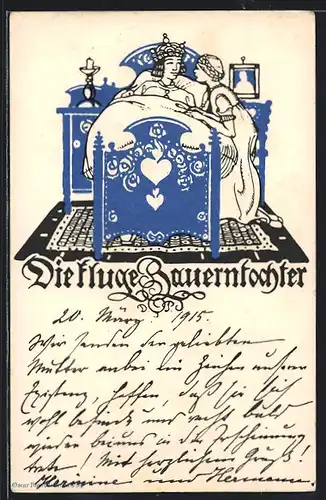 Die kluge Bauerntochter
20. März 1915.
Wir senden der geliebten
Mutter anbei ein Zeichen unserer
Existenz, hoffen, daß sie sich
wohl befindet und recht bald
wieder bei uns in die Erscheinung
trete! Mit herzlichem Gruß!
Hermine und Hermann
Oscar